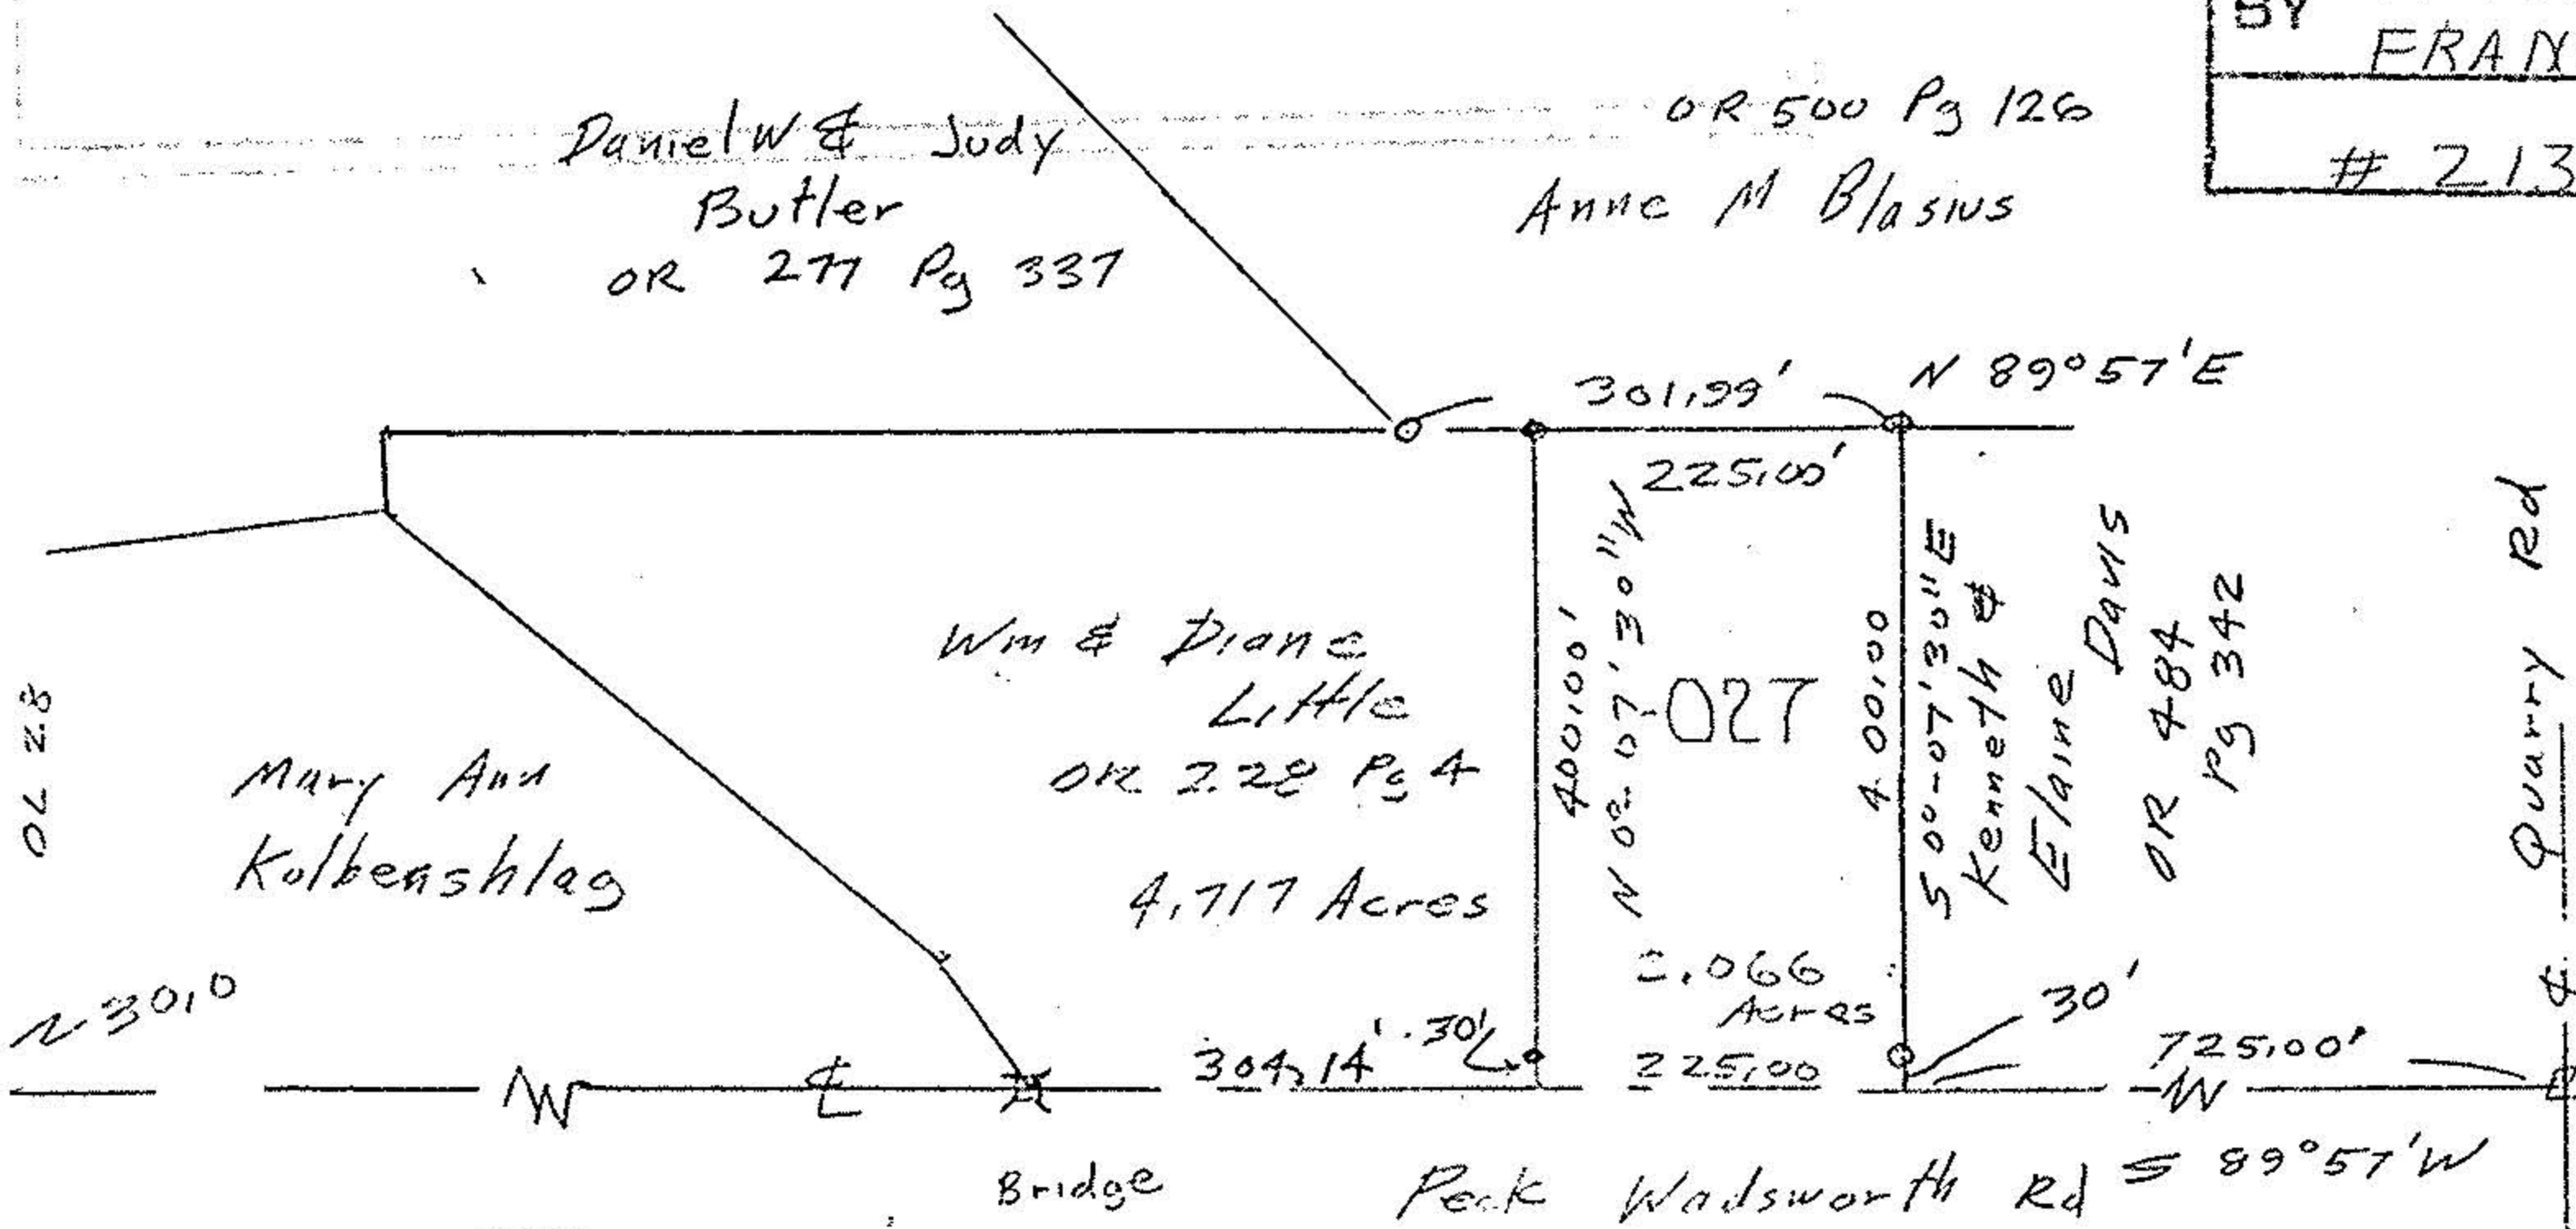 BY
FRAN
# 213
Daniel W & Judy
Butler
OR 277 Pg 337
OR 500 Pg 126
Anne M Blasius
301.99'
N 89°57'E
225.00'
Wm & Diane
Little
OR 228 Pg 4
4.717 Acres
400.00'
N 0° 07' 30" W
027
2.066
Acres
400.00
S 0°-07' 30" E
Kenneth &
Elaine Davis
OR 484
Pg 342
Quarry Rd
℄
OL 28
Mary Ann
Kolbenshlag
N 30.0
℄
304.14'
30'
225.00
30'
725.00'
Bridge
Peck Wadsworth Rd S 89°57'W